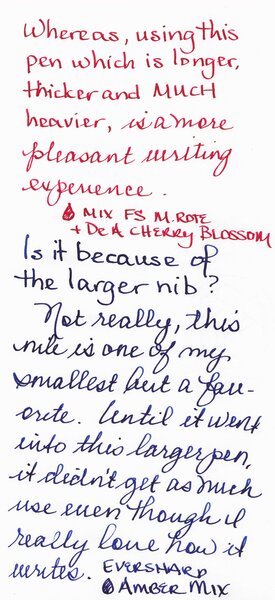 Whereas, using this
pen which is longer,
thicker and MUCH
heavier, is a more
pleasant writing
experience.
MIX FS M. ROTE
+ DeA CHERRY BLOSSOM
Is it because of
the larger nib?
Not really, this
nib is one of my
smallest but a fav-
orite. Until it went
into this larger pen,
it didn't get as much
use even though I
really love how it
writes. EVERSHARP
AMBER MIX